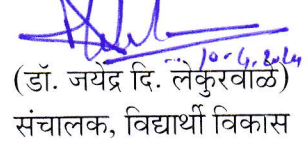 10-4-2024
(डॉ. जयेंद्र दि. लेकुरवाळे)
संचालक, विद्यार्थी विकास